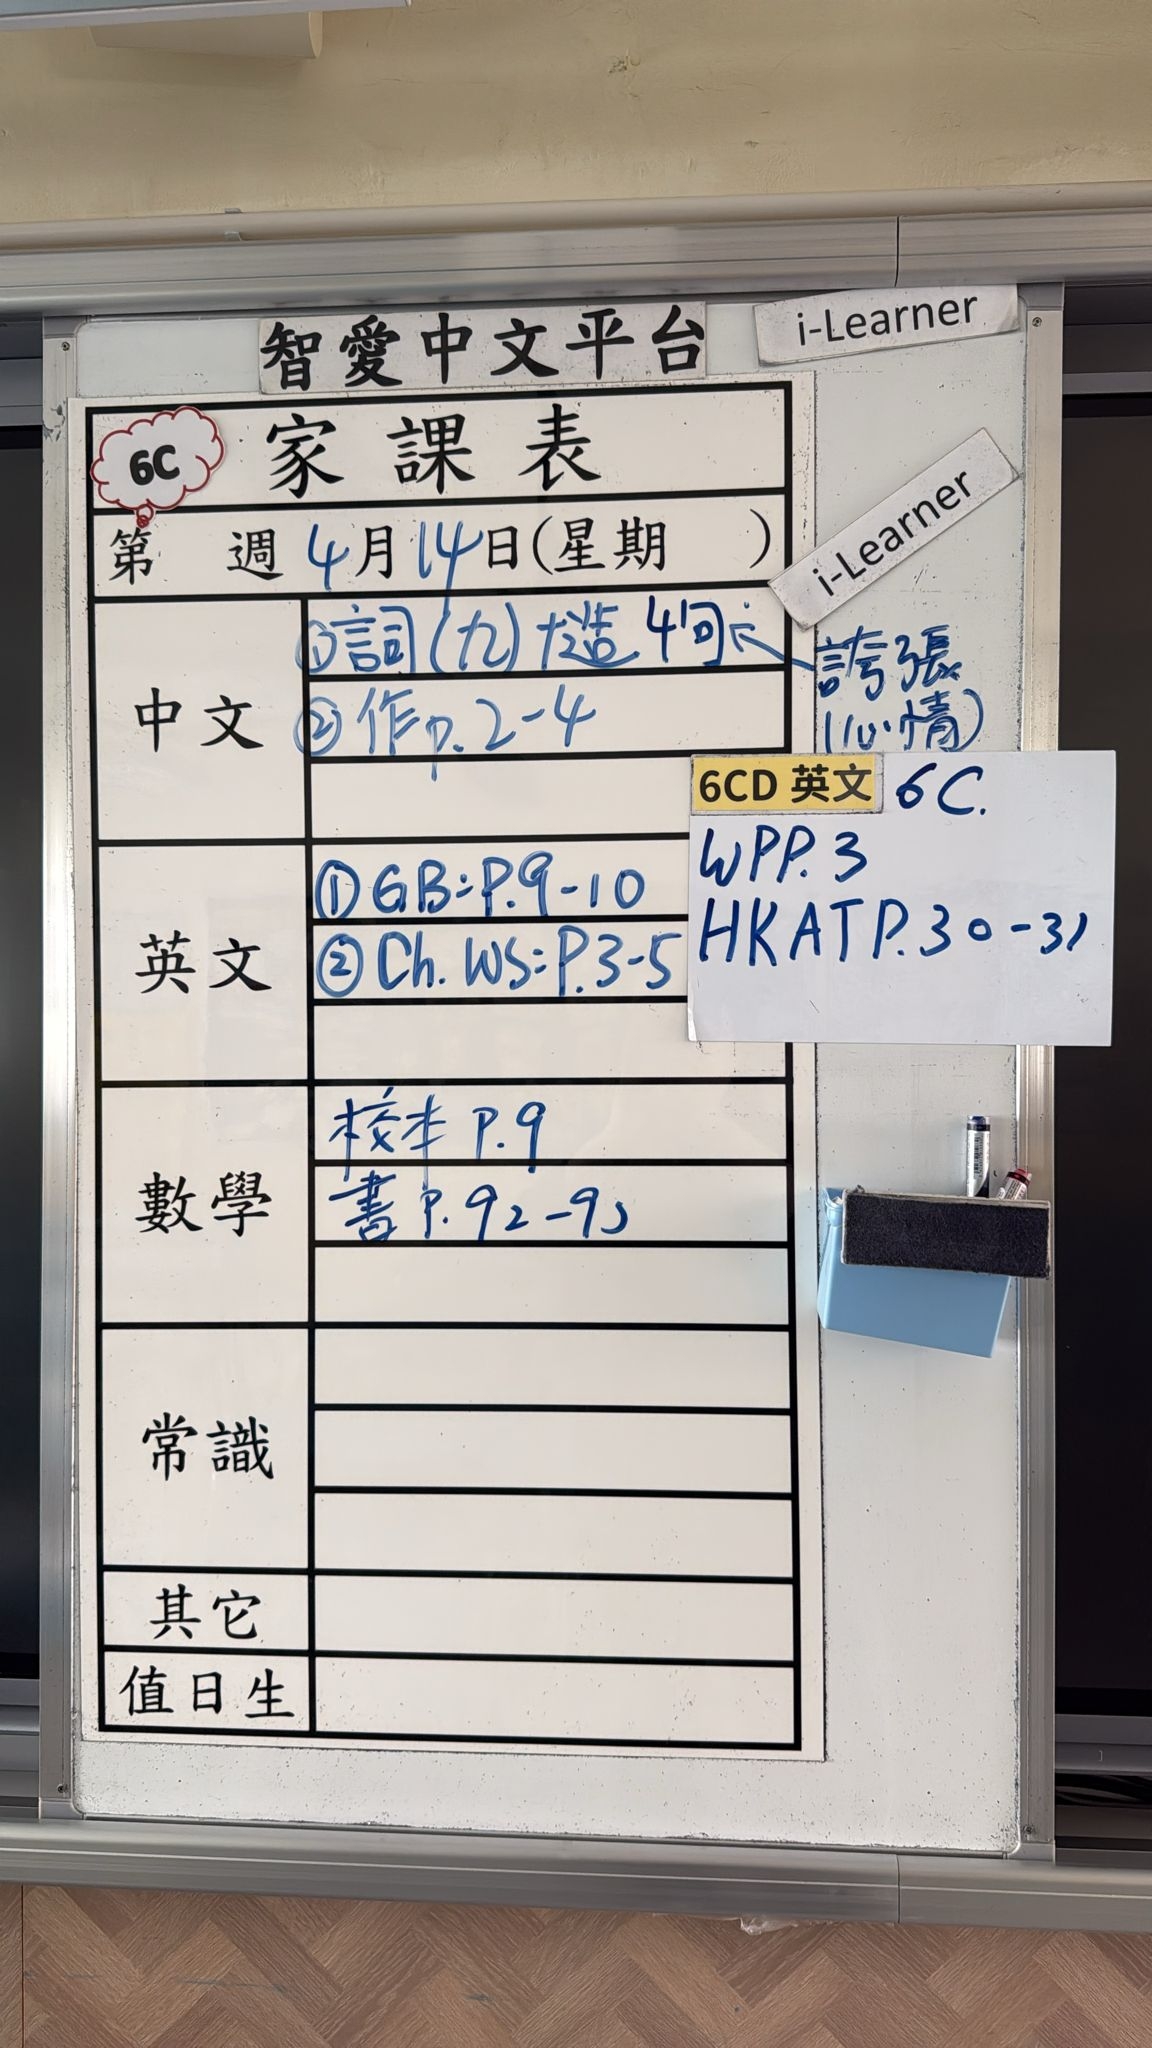 智愛中文平台
i-Learner
6C
家課表
i-Learner
第 週 4月14日(星期 )
中文
①詞(九)+造4句
誇張
(心情)
②作p.2-4
6CD 英文 6C.
WPP.3
HKAT P.30-31
英文
①GB:P.9-10
②Ch. WS:P.3-5
數學
校本 P.9
書 P.92-93
常識
其它
值日生